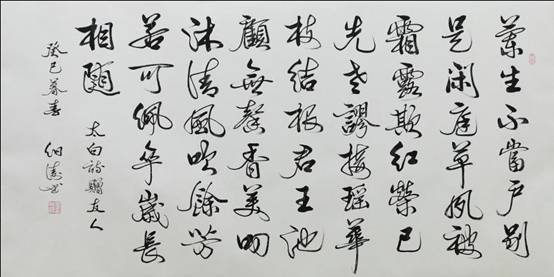 蘭生不當戶別
是閑庭草夙被
霜露欺紅榮已
先老謬接瑤華
枝結根君王池
顧無馨香美叨
沐清風吹餘芳
若可佩卒歲長
相隨
太白詩贈友人
癸巳暮春
書